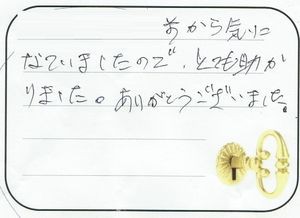 前から気に
なていましたので、とても助か
りました。ありがとうございました。